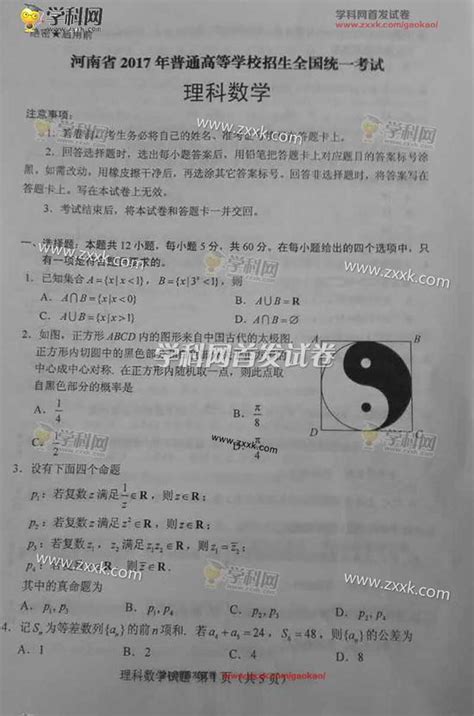 学科网
学科网首发试卷
www.zxxk.com/gaokao/
绝密★启用前
河南省 2017 年普通高等学校招生全国统一考试
理科数学
注意事项：
1．答卷前，考生务必将自己的姓名、准考证号填写在答题卡上。
2．回答选择题时，选出每小题答案后，用铅笔把答题卡上对应题目的答案标号涂
黑。如需改动，用橡皮擦干净后，再选涂其它答案标号。回答非选择题时，将答案写在
答题卡上。写在本试卷上无效。
3．考试结束后，将本试卷和答题卡一并交回。
一、选择题：本题共 12 小题，每小题 5 分，共 60 分。在每小题给出的四个选项中，只
有一项是符合题目要求的。
1．已知集合 A={x|x<1}，B={x|3ˣ<1}，则
A．A∩B={x|x<0} B．A∪B=R
C．A∪B={x|x>1} D．A∩B=∅
2．如图，正方形 ABCD 内的图形来自中国古代的太极图.
正方形内切圆中的黑色部分
中心成中心对称. 在正方形内随机取一点，则此点取
自黑色部分的概率是
A．1/4 B．π/8
C．1/2 D．π/4
A B
D C
3．设有下面四个命题
p₁：若复数 z 满足 1/z∈R，则 z∈R；
p₂：若复数 z 满足 z²∈R，则 z∈R；
p₃：若复数 z₁，z₂ 满足 z₁z₂∈R，则 z₁=z̄₂；
p₄：若复数 z∈R，则 z̄∈R.
其中的真命题为
A．p₁,p₃ B．p₁,p₄ C．p₂,p₃ D．p₂,p₄
4．记 Sₙ 为等差数列{aₙ}的前 n 项和. 若 a₄+a₅=24，S₆=48，则{aₙ}的公差为
A．1 B．2 C．4 D．8
理科数学试题 第 1 页（共 5 页）
www.zxxk.com/gaokao/
学科网首发试卷
www.zxxk.com